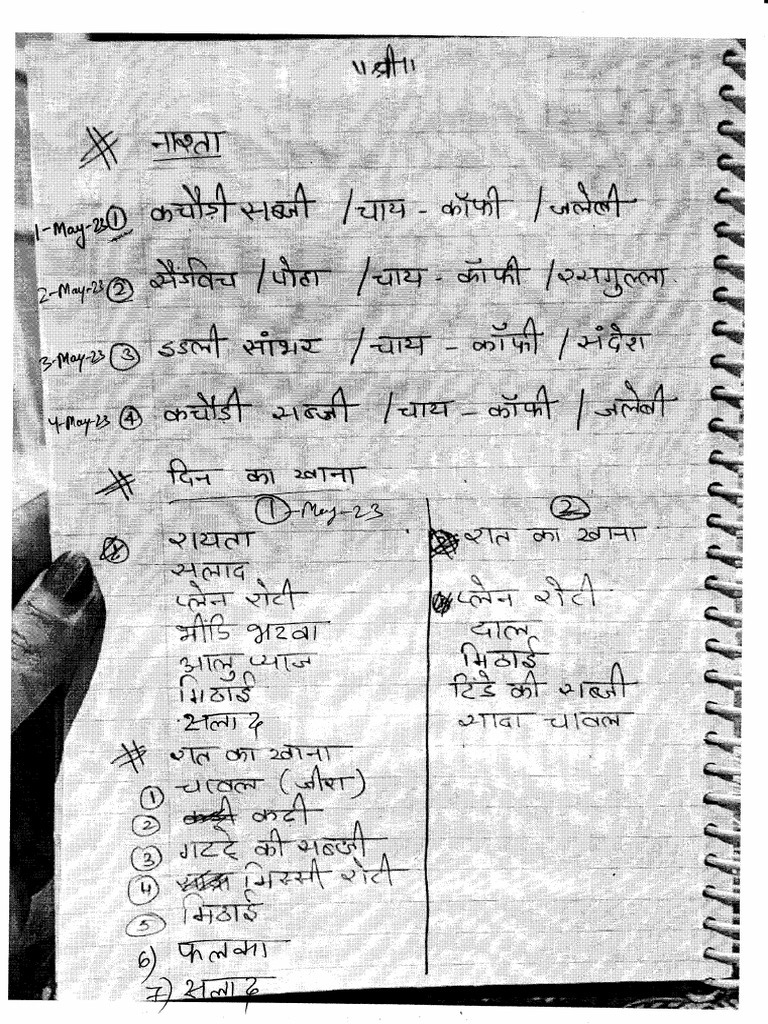 ॥ श्री ॥
# नाश्ता
1-May-23 ① कचौड़ी सब्जी / चाय - कॉफी / जलेबी
2-May-23 ② सैंडविच / पोहा / चाय - कॉफी / रसगुल्ला
3-May-23 ③ इडली सांभर / चाय - कॉफी / संदेश
4-May-23 ④ कचौडी सब्जी / चाय - कॉफी / जलेबी
# दिन का खाना
①-May-23
रायता
सलाद
प्लेन रोटी
भींडि भरवा
आलु प्याज
मिठाई
सलाद
# रात का खाना
① चावल (जीरा)
② कढी
③ गटटे की सब्जी
④ मिस्सी रोटी
⑤ मिठाई
6)
7) सलाद
②
रात का खाना
प्लेन रोटी
दाल
मिठाई
टिंडे की सब्जी
सादा चावल